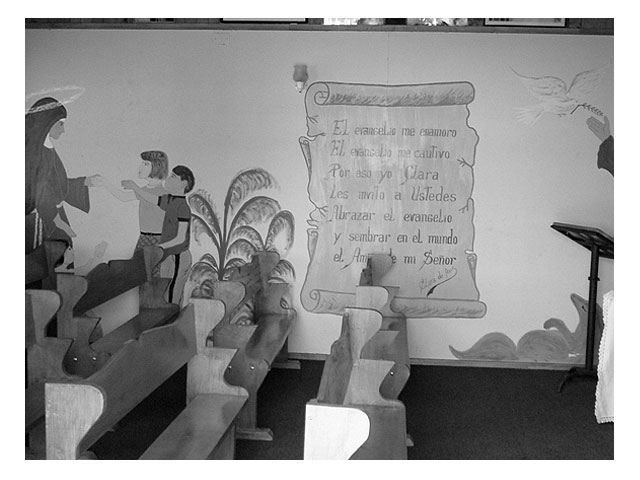 El evangelio me enamoro
El evangelio me cautivo
Por eso yo Clara
Les invito a Ustedes
Abrazar el evangelio
y sembrar en el mundo
el Amor de mi Señor
Clara de Asis